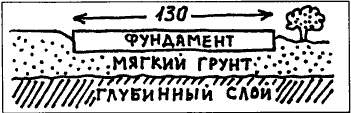 130
ФУНДАМЕНТ
МЯГКИЙ ГРУНТ
ГЛУБИННЫЙ СЛОЙ